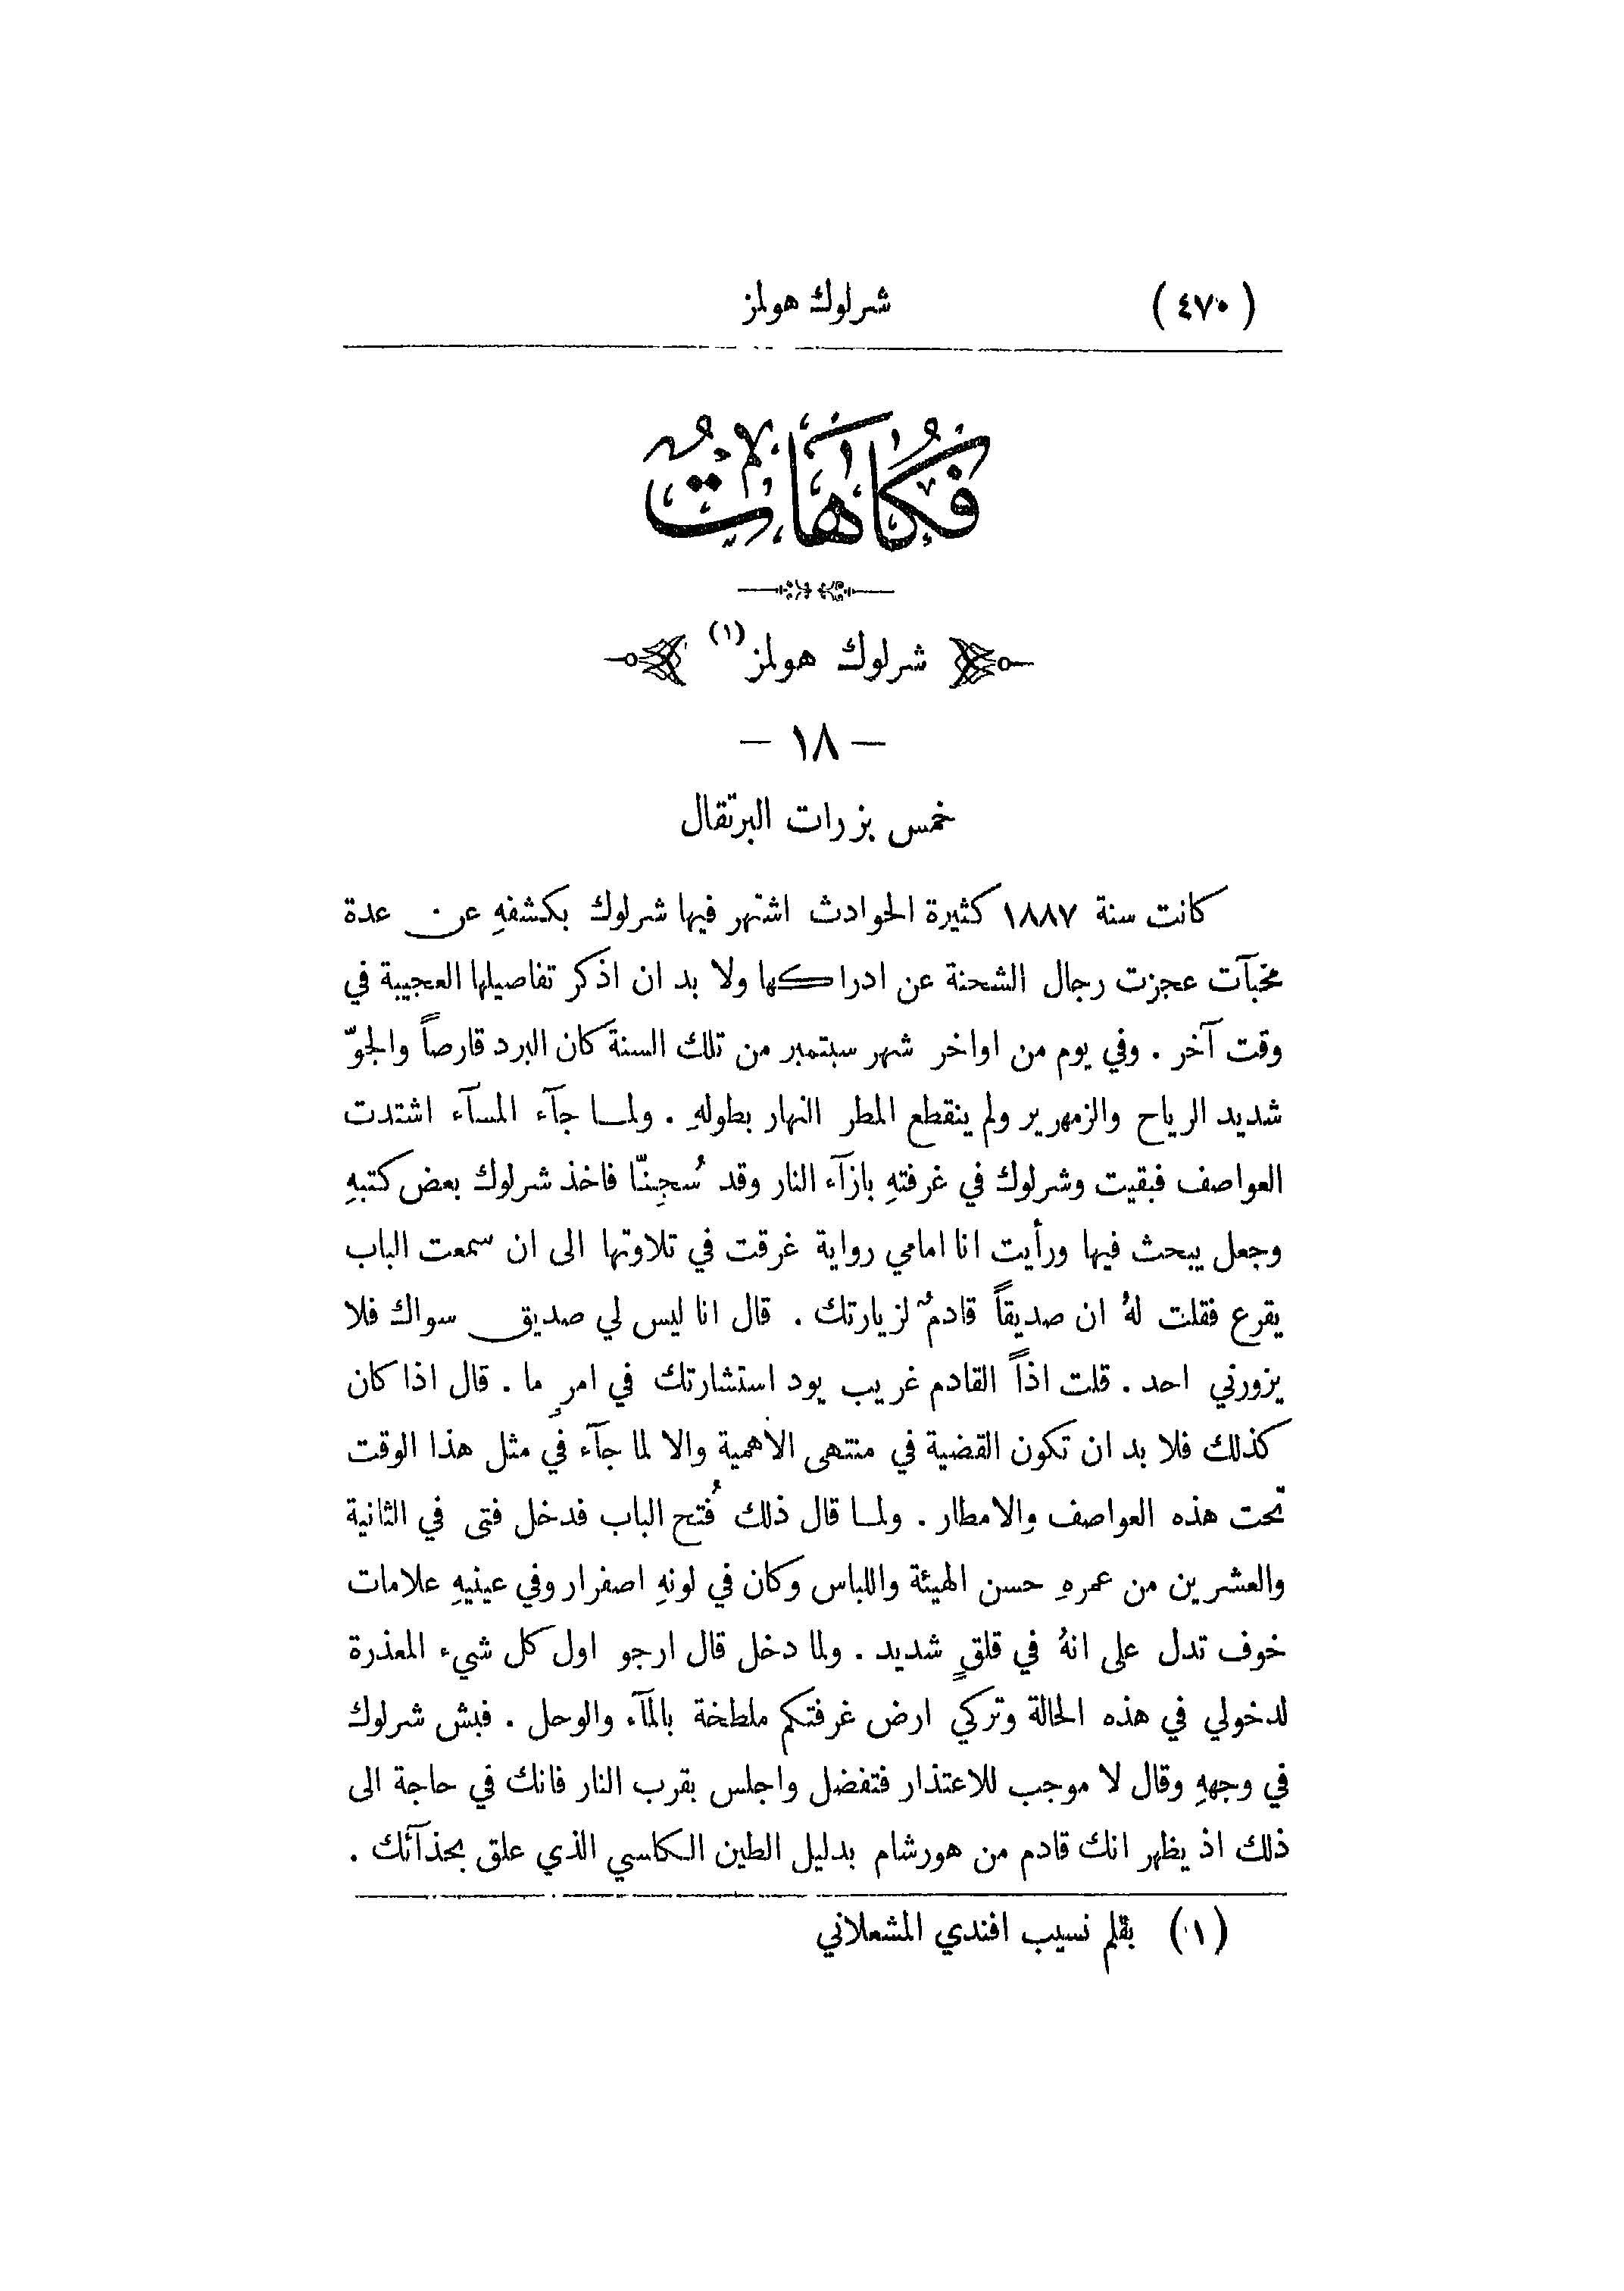 (٤٧٠) شرلوك هولمز
فكاهات
شرلوك هولمز (١)
— ١٨ —
خمس بزرات البرتقال
كانت سنة ١٨٨٧ كثيرة الحوادث اشتهر فيها شرلوك بكشفهِ عن عدة
مخبآت عجزت رجال الشحنة عن ادراكها ولا بد ان اذكر تفاصيلها العجيبة في
وقت آخر . وفي يوم من اواخر شهر سبتمبر من تلك السنة كان البرد قارصاً والجوّ
شديد الرياح والزمهرير ولم ينقطع المطر النهار بطولهِ . ولما جآء المسآء اشتدت
العواصف فبقيت وشرلوك في غرفتهِ بازآء النار وقد سُجِنّا فاخذ شرلوك بعض كتبهِ
وجعل يبحث فيها ورأيت انا امامي رواية غرقت في تلاوتها الى ان سمعت الباب
يقرع فقلت لهُ ان صديقاً قادمٌ لزيارتك . قال انا ليس لي صديق سواك فلا
يزورني احد . قلت اذاً القادم غريب يود استشارتك في امرٍ ما . قال اذا كان
كذلك فلا بد ان تكون القضية في منتهى الاهمية والا لما جآء في مثل هذا الوقت
تحت هذه العواصف والامطار . ولما قال ذلك فُتح الباب فدخل فتى في الثانية
والعشرين من عمرهِ حسن الهيئة واللباس وكان في لونهِ اصفرار وفي عينيهِ علامات
خوف تدل على انهُ في قلقٍ شديد . ولما دخل قال ارجو اول كل شيء المعذرة
لدخولي في هذه الحالة وتركي ارض غرفتكم ملطخة بالمآء والوحل . فبش شرلوك
في وجههِ وقال لا موجب للاعتذار فتفضل واجلس بقرب النار فانك في حاجة الى
ذلك اذ يظهر انك قادم من هورشام بدليل الطين الكاسي الذي علق بحذآئك .
(١) بقلم نسيب افندي المشعلاني